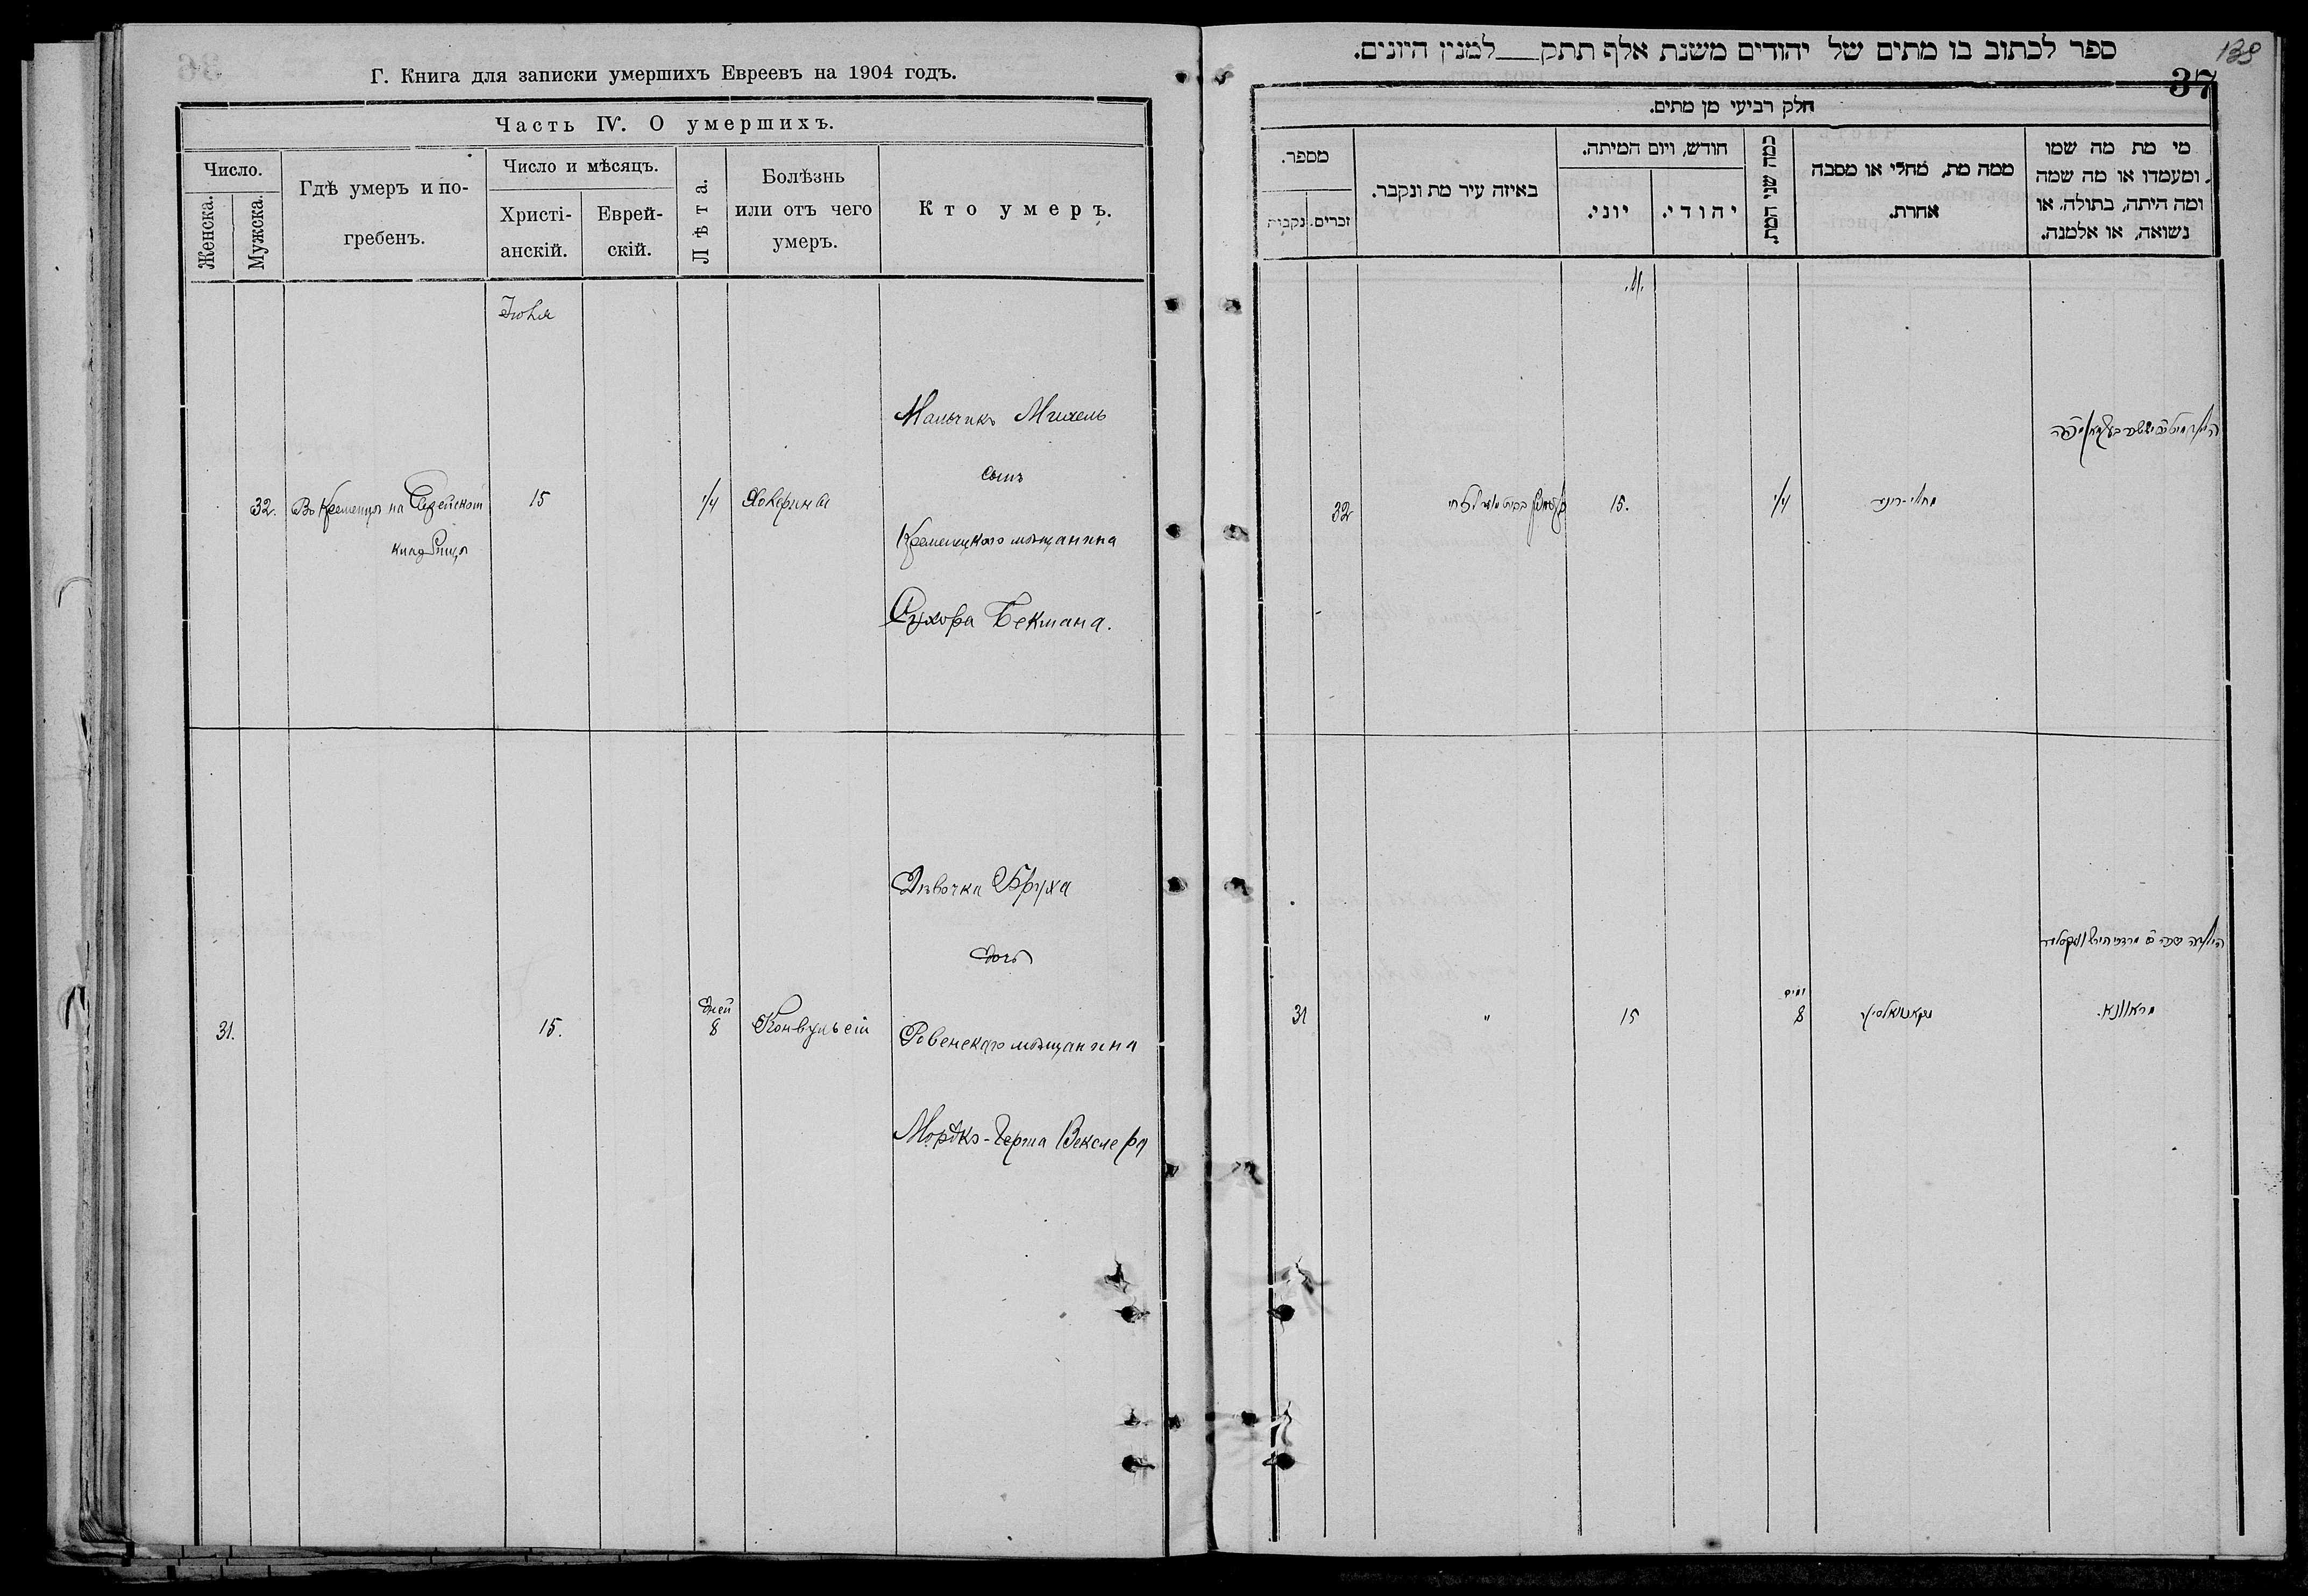 Г. Книга для записки умершихъ Евреевъ на 1904 годъ.
Часть IV. О умершихъ.
Число.
Женска.
Мужска.
Гдѣ умеръ и по-
гребенъ.
Число и мѣсяцъ.
Христі-
анскій.
Еврей-
скій.
Лѣта.
Болѣзнь
или отъ чего
умеръ.
Кто умеръ.
Іюля
32.
Въ Кременцѣ на Еврейском
кладбищѣ
15
1/4
Холерины
Мальчикъ Михель
сынъ
Кременецкого мѣщанина
Сухора Бекмана.
31.
15.
дней
8
Конвульсіи
Дѣвочка Бруха
дочь
Ровенскаго мѣщанина
Мордко-Герша Векслера
139
37
ספר לכתוב בו מתים של יהודים משנת אלף תתק למנין היונים.
חלק רביעי מן מתים.
מספר.
נקבות
זכרים.
באיזה עיר מת ונקבר.
חודש, ויום המיתה.
יוני.
יהודי.
כמה שני המת.
ממה מת, מחלי או מסבה
אחרת.
מי מת מה שמו
ומעמדו או מה שמה
ומה היתה, בתולה, או
נשואה, או אלמנה.
32
15.
1/4
31
"
15
ימים
8